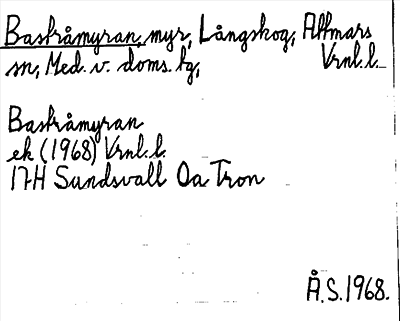 Baskråmyran, myr, Långskog, Attmars
sn, Med. v. doms. lg, Vrnl. l.
Baskråmyran
ek (1968) Vrnl. l.
17H Sundsvall Oa Tron
Å.S. 1968.